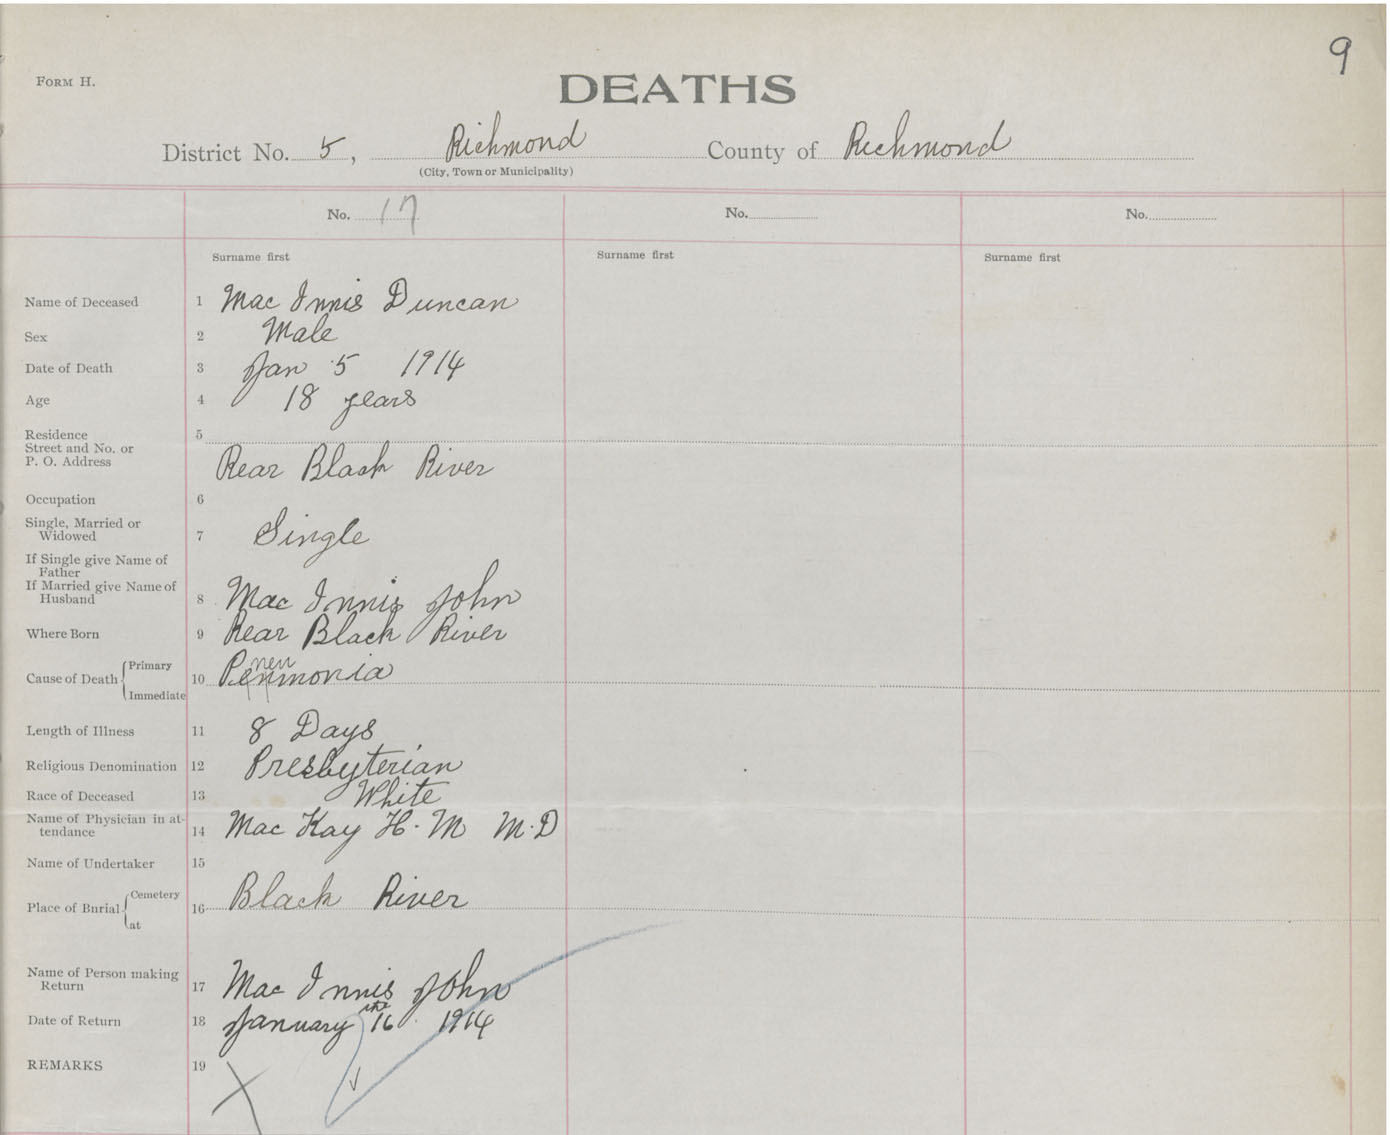 9
FORM H.
DEATHS
District No. 5, Richmond County of Richmond
(City, Town or Municipality)
No. 17 No. No.
Surname first Surname first Surname first
Name of Deceased 1 Mac Innis Duncan
Sex 2 Male
Date of Death 3 Jan 5 1914
Age 4 18 years
Residence 5
Street and No. or
P. O. Address Rear Black River
Occupation 6
Single, Married or
Widowed 7 Single
If Single give Name of
Father
If Married give Name of
Husband 8 Mac Innis John
Where Born 9 Rear Black River
Cause of Death Primary 10 Pneumonia
Immediate
Length of Illness 11 8 Days
Religious Denomination 12 Presbyterian
Race of Deceased 13 White
Name of Physician in at-
tendance 14 Mac Kay H. M M.D
Name of Undertaker 15
Place of Burial Cemetery 16 Black River
at
Name of Person making
Return 17 Mac Innis John
Date of Return 18 January 16 1914
REMARKS 19